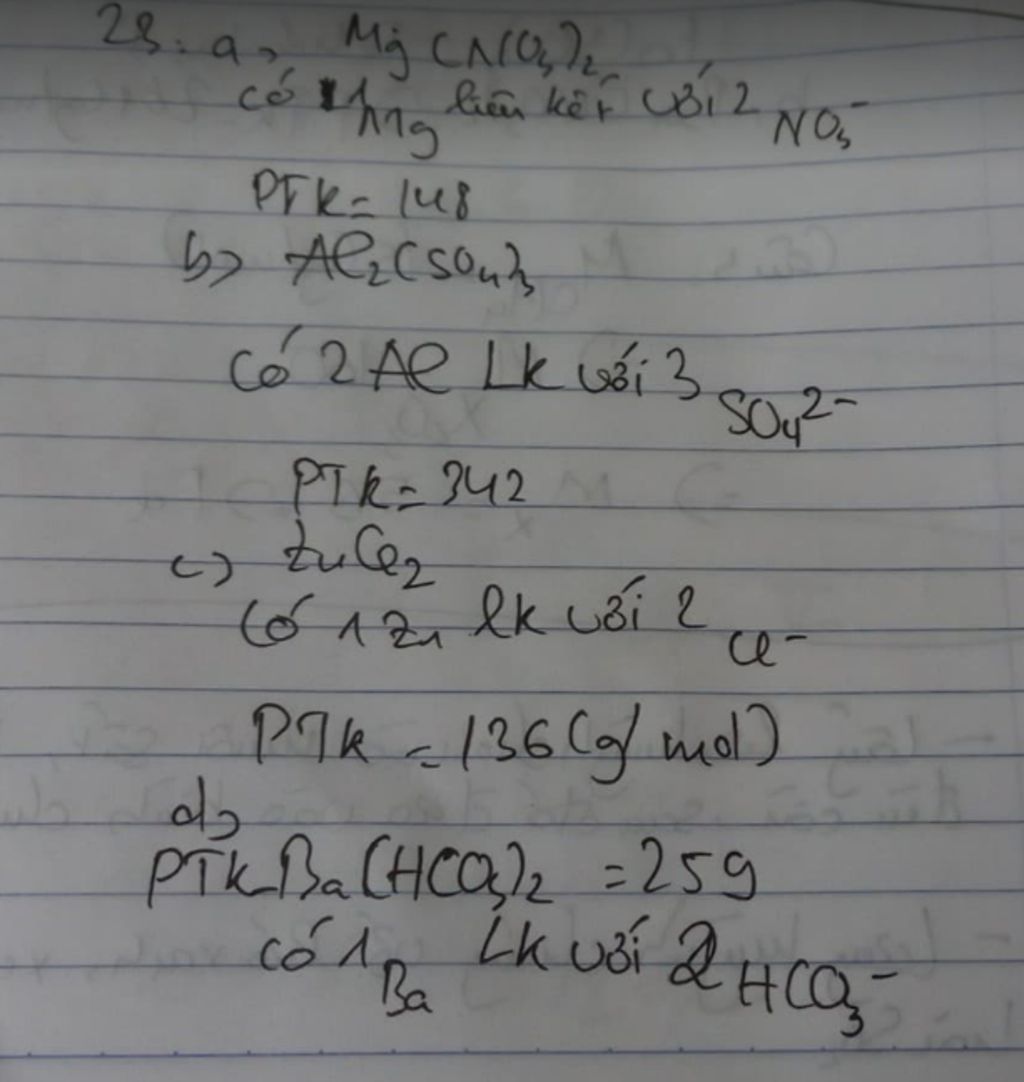 23. a, Mg(NO₃)₂
có 1 Mg liên kết với 2 NO₃⁻
PTK = 148
b> Al₂(SO₄)₃
Có 2 Al Lk với 3 SO₄²⁻
PTK = 342
c) ZnCl₂
Có 1 Zn lk với 2 Cl⁻
PTK = 136 (g/mol)
d>
PTK Ba(HCO₃)₂ = 259
có 1 Ba Lk với 2 HCO₃⁻